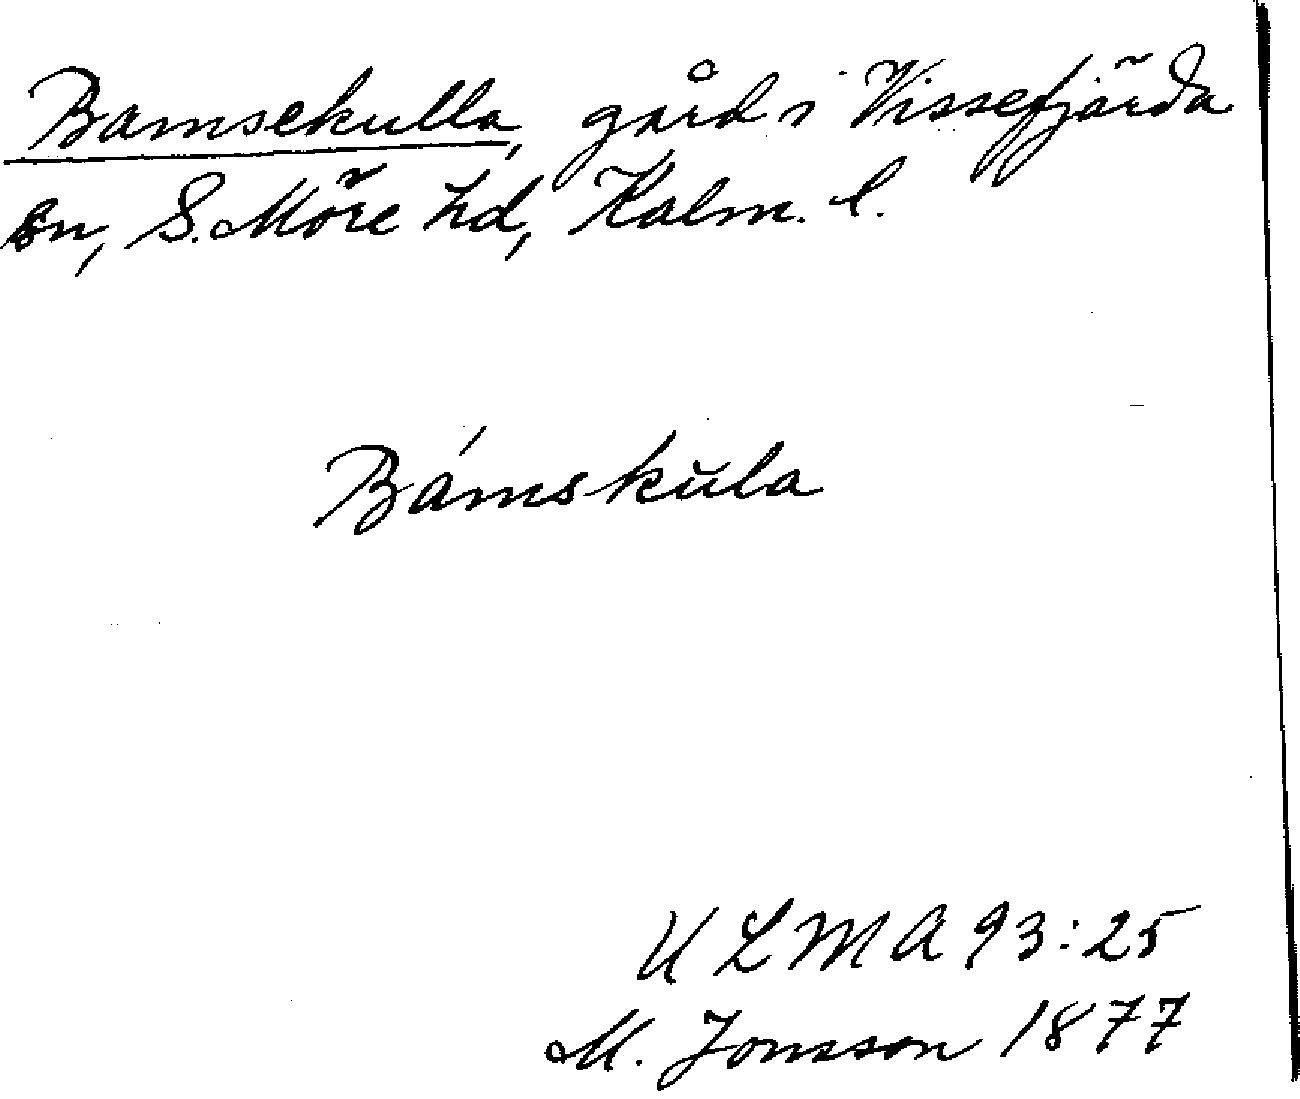 Bamsekulla, gård i Vissefjärda
sn, S. Möre hd, Kalm. l.
Bámskŭla
ULMA 93:25
M. Jonsson 1877